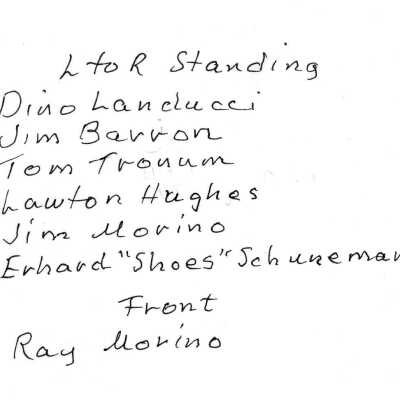 L to R Standing
Dino Landucci
Jim Barron
Tom Tronum
Lawton Hughes
Jim Morino
Erhard "Shoes" Schuneman
Front
Ray Morino